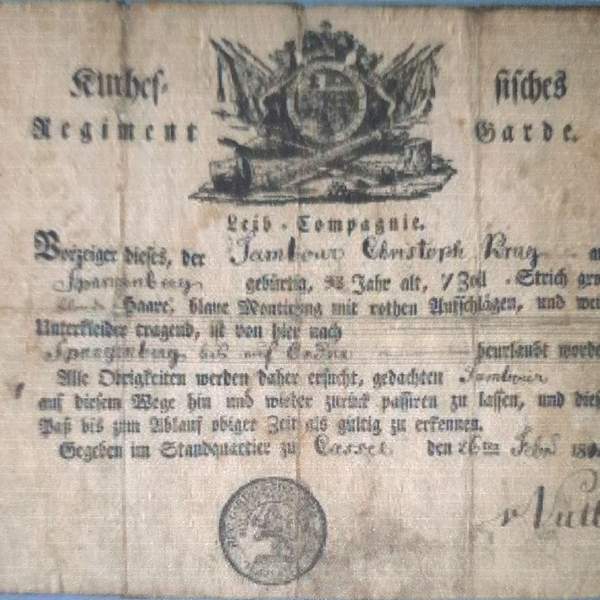 Kurhes- sisches
Regiment Garde.
Leib-Compagnie.
Vorzeiger dieses, der Tambour Christoph Krug
Spangenberg gebürtig, Jahr alt, 7 Zoll - Strich gro
Haare, blaue Montirung mit rothen Aufschlägen, und wei
Unterkleider tragend, ist von hier nach
Spangenberg bis auf Ordre beurlaubt worde
Alle Obrigkeiten werden daher ersucht, gedachten Tambour
auf diesem Wege hin und wieder zurück passiren zu lassen, und dies
Paß bis zum Ablauf obiger Zeit als gültig zu erkennen.
Gegeben im Standquartier zu Cassel den 26ten Febr 180